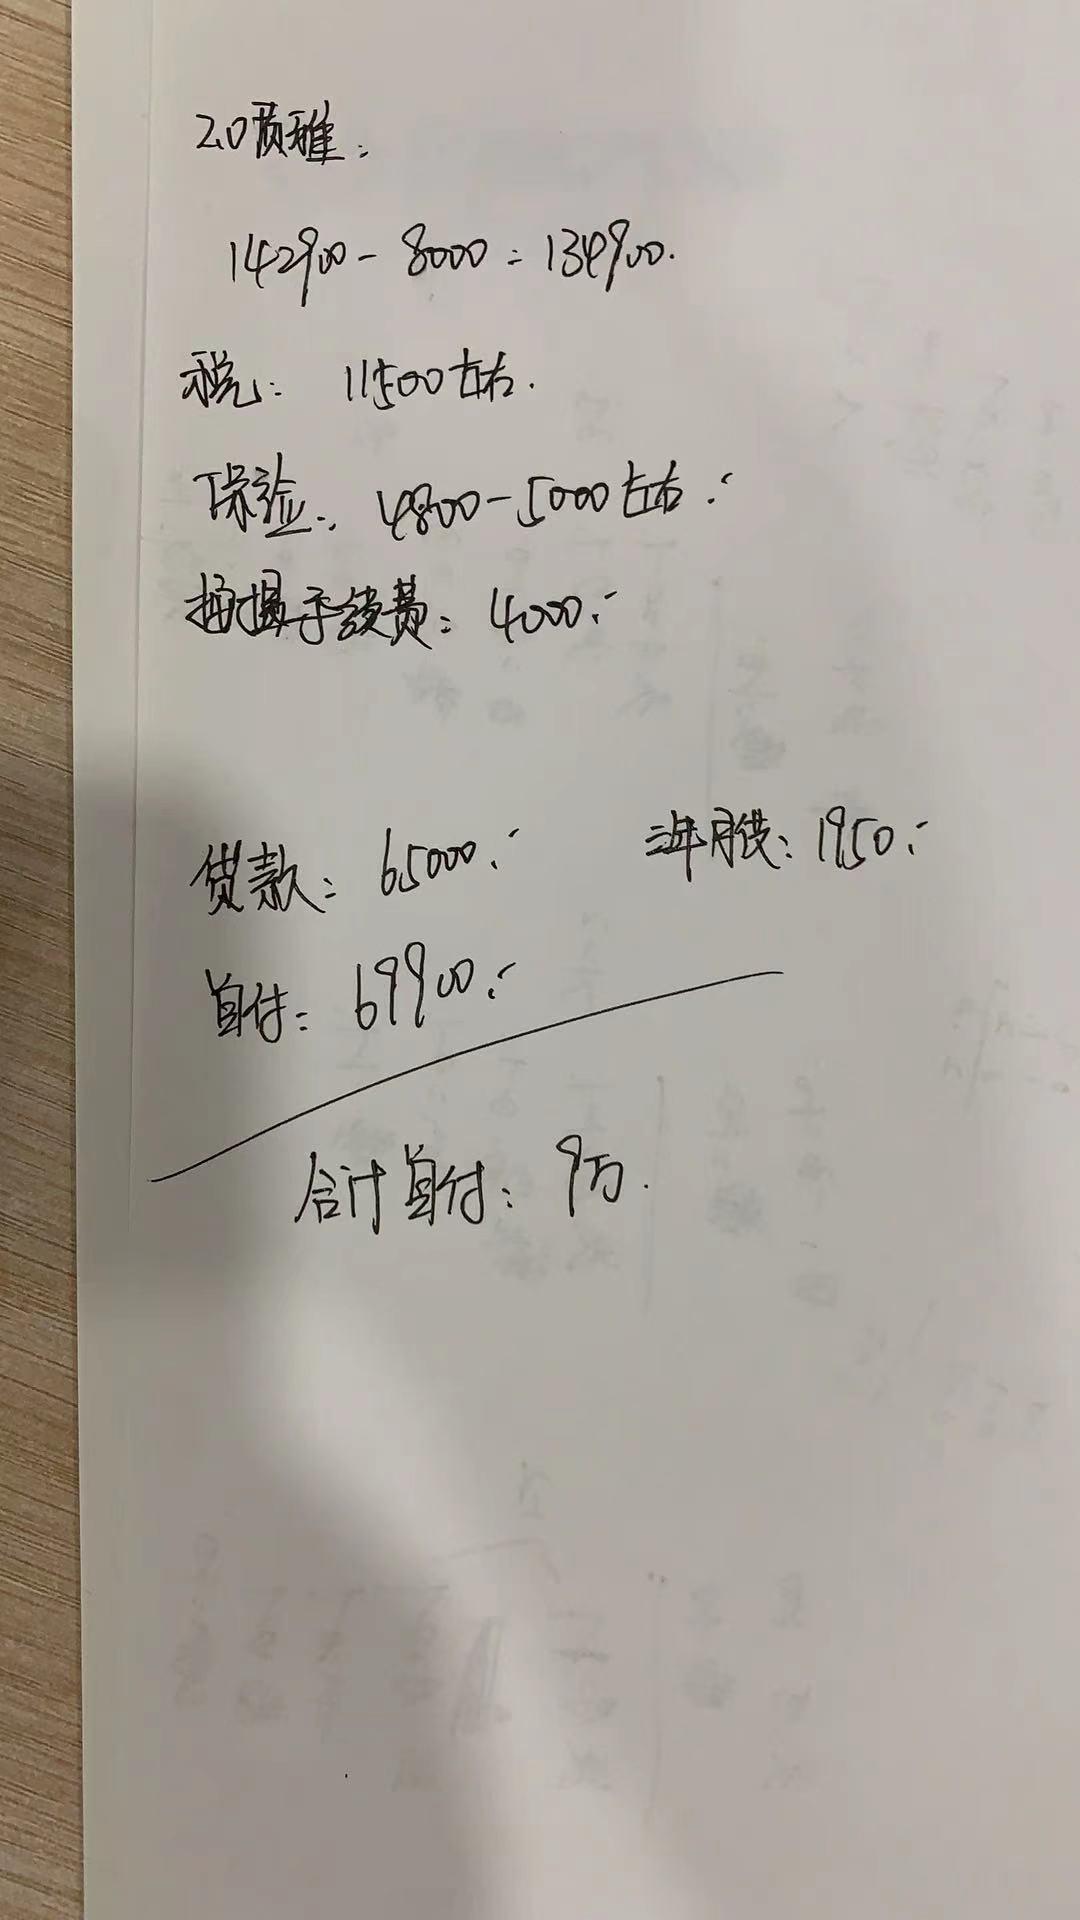 2.0质雅:
142900-8000=134900.
税: 11500左右.
保险: 4800-5000左右:
手续费: 4000:
贷款: 65000: 三年月供: 1950:
首付: 69900:
合计首付: 9万.